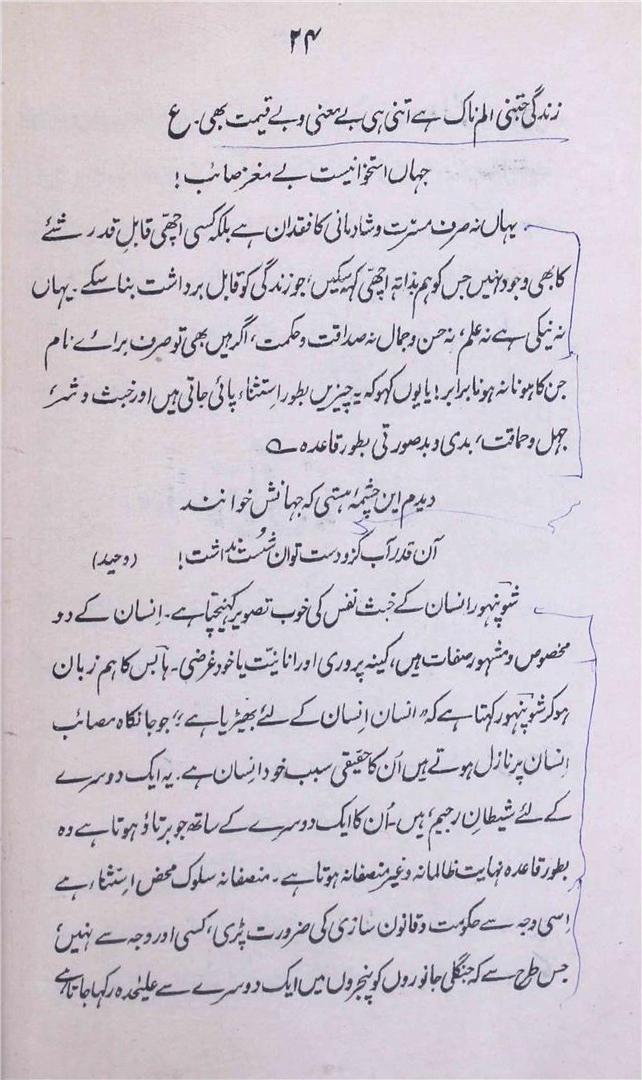 ۲۴
زندگی جتنی الم ناک ہے اتنی ہی بے معنی و بے قیمت بھی۔ ع
جہاں استخوانیست بے مغز صائب!
یہاں نہ صرف مسرت و شادمانی کا فقدان ہے بلکہ کسی اچھی قابلِ قدر شئے
کا بھی وجود نہیں جس کو ہم بذاتہ اچھی کہہ سکیں، جو زندگی کو قابل برداشت بنا سکے۔ یہاں
نہ نیکی ہے نہ علم، نہ حسن و جمال نہ صداقت و حکمت، اگر ہیں بھی تو صرف برائے نام
جن کا ہونا نہ ہونا برابر! یا یوں کہو کہ یہ چیزیں بطور استثناء پائی جاتی ہیں اور خبث و شر،
جہل و حماقت، بدی و بدصورتی بطور قاعدہ ؎
دیدم این چشمۂ ہستی کہ جہانش خوانند
آن قدر آب کزو دست توان شُست نداشت! (وحید)
شوپنہور انسان کے خبث نفس کی خوب تصویر کھینچتا ہے۔ اِنسان کے دو
مخصوص و مشہور صفات ہیں، کینہ پروری اور انانیّت یا خود غرضی۔ ہابس کا ہم زبان
ہو کر شوپنہور کہتا ہے کہ "انسان اِنسان کے لئے بھیڑیا ہے"؛ جو جانکاہ مصائب
اِنسان پر نازل ہوتے ہیں اُن کا حقیقی سبب خود انسان ہے۔ یہ ایک دوسرے
کے لئے شیطانِ رجیم، ہیں۔ اُن کا ایک دوسرے کے ساتھ جو برتاؤ ہوتا ہے وہ
بطور قاعدہ نہایت ظالمانہ و غیر منصفانہ ہوتا ہے۔ منصفانہ سلوک محض اِستثناء ہے
اِسی وجہ سے حکومت و قانون سازی کی ضرورت پڑی، کسی اور وجہ سے نہیں،
جس طرح سے کہ جنگلی جانوروں کو پنجروں میں ایک دوسرے سے علیٰحدہ رکھا جاتا ہے